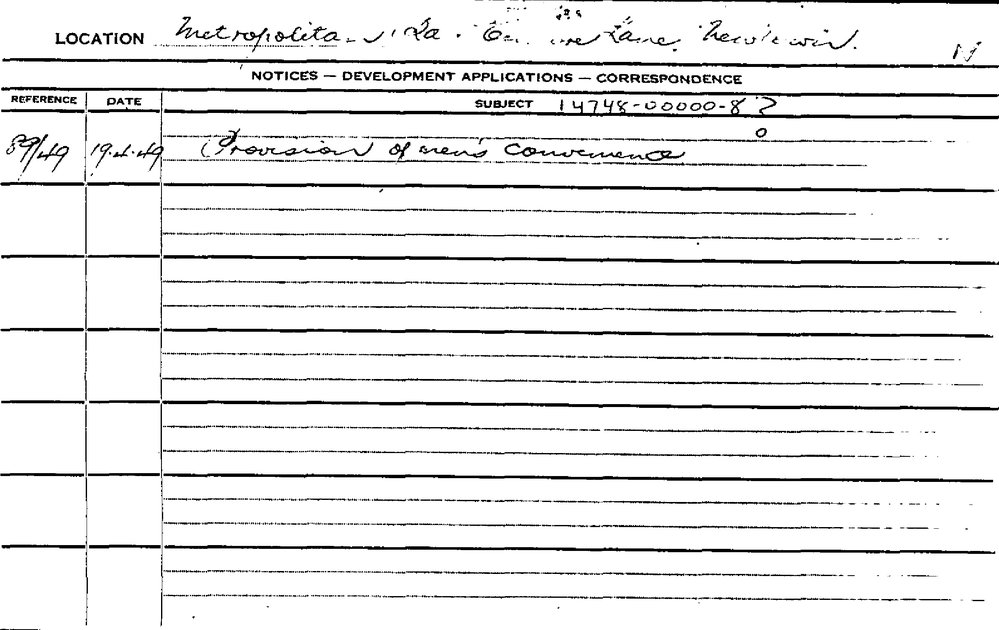 LOCATION Metropolita Lane,
NOTICES — DEVELOPMENT APPLICATIONS — CORRESPONDENCE
REFERENCE DATE SUBJECT 14748-00000-8?
89/49 19.4.49 Provision of men's convenience